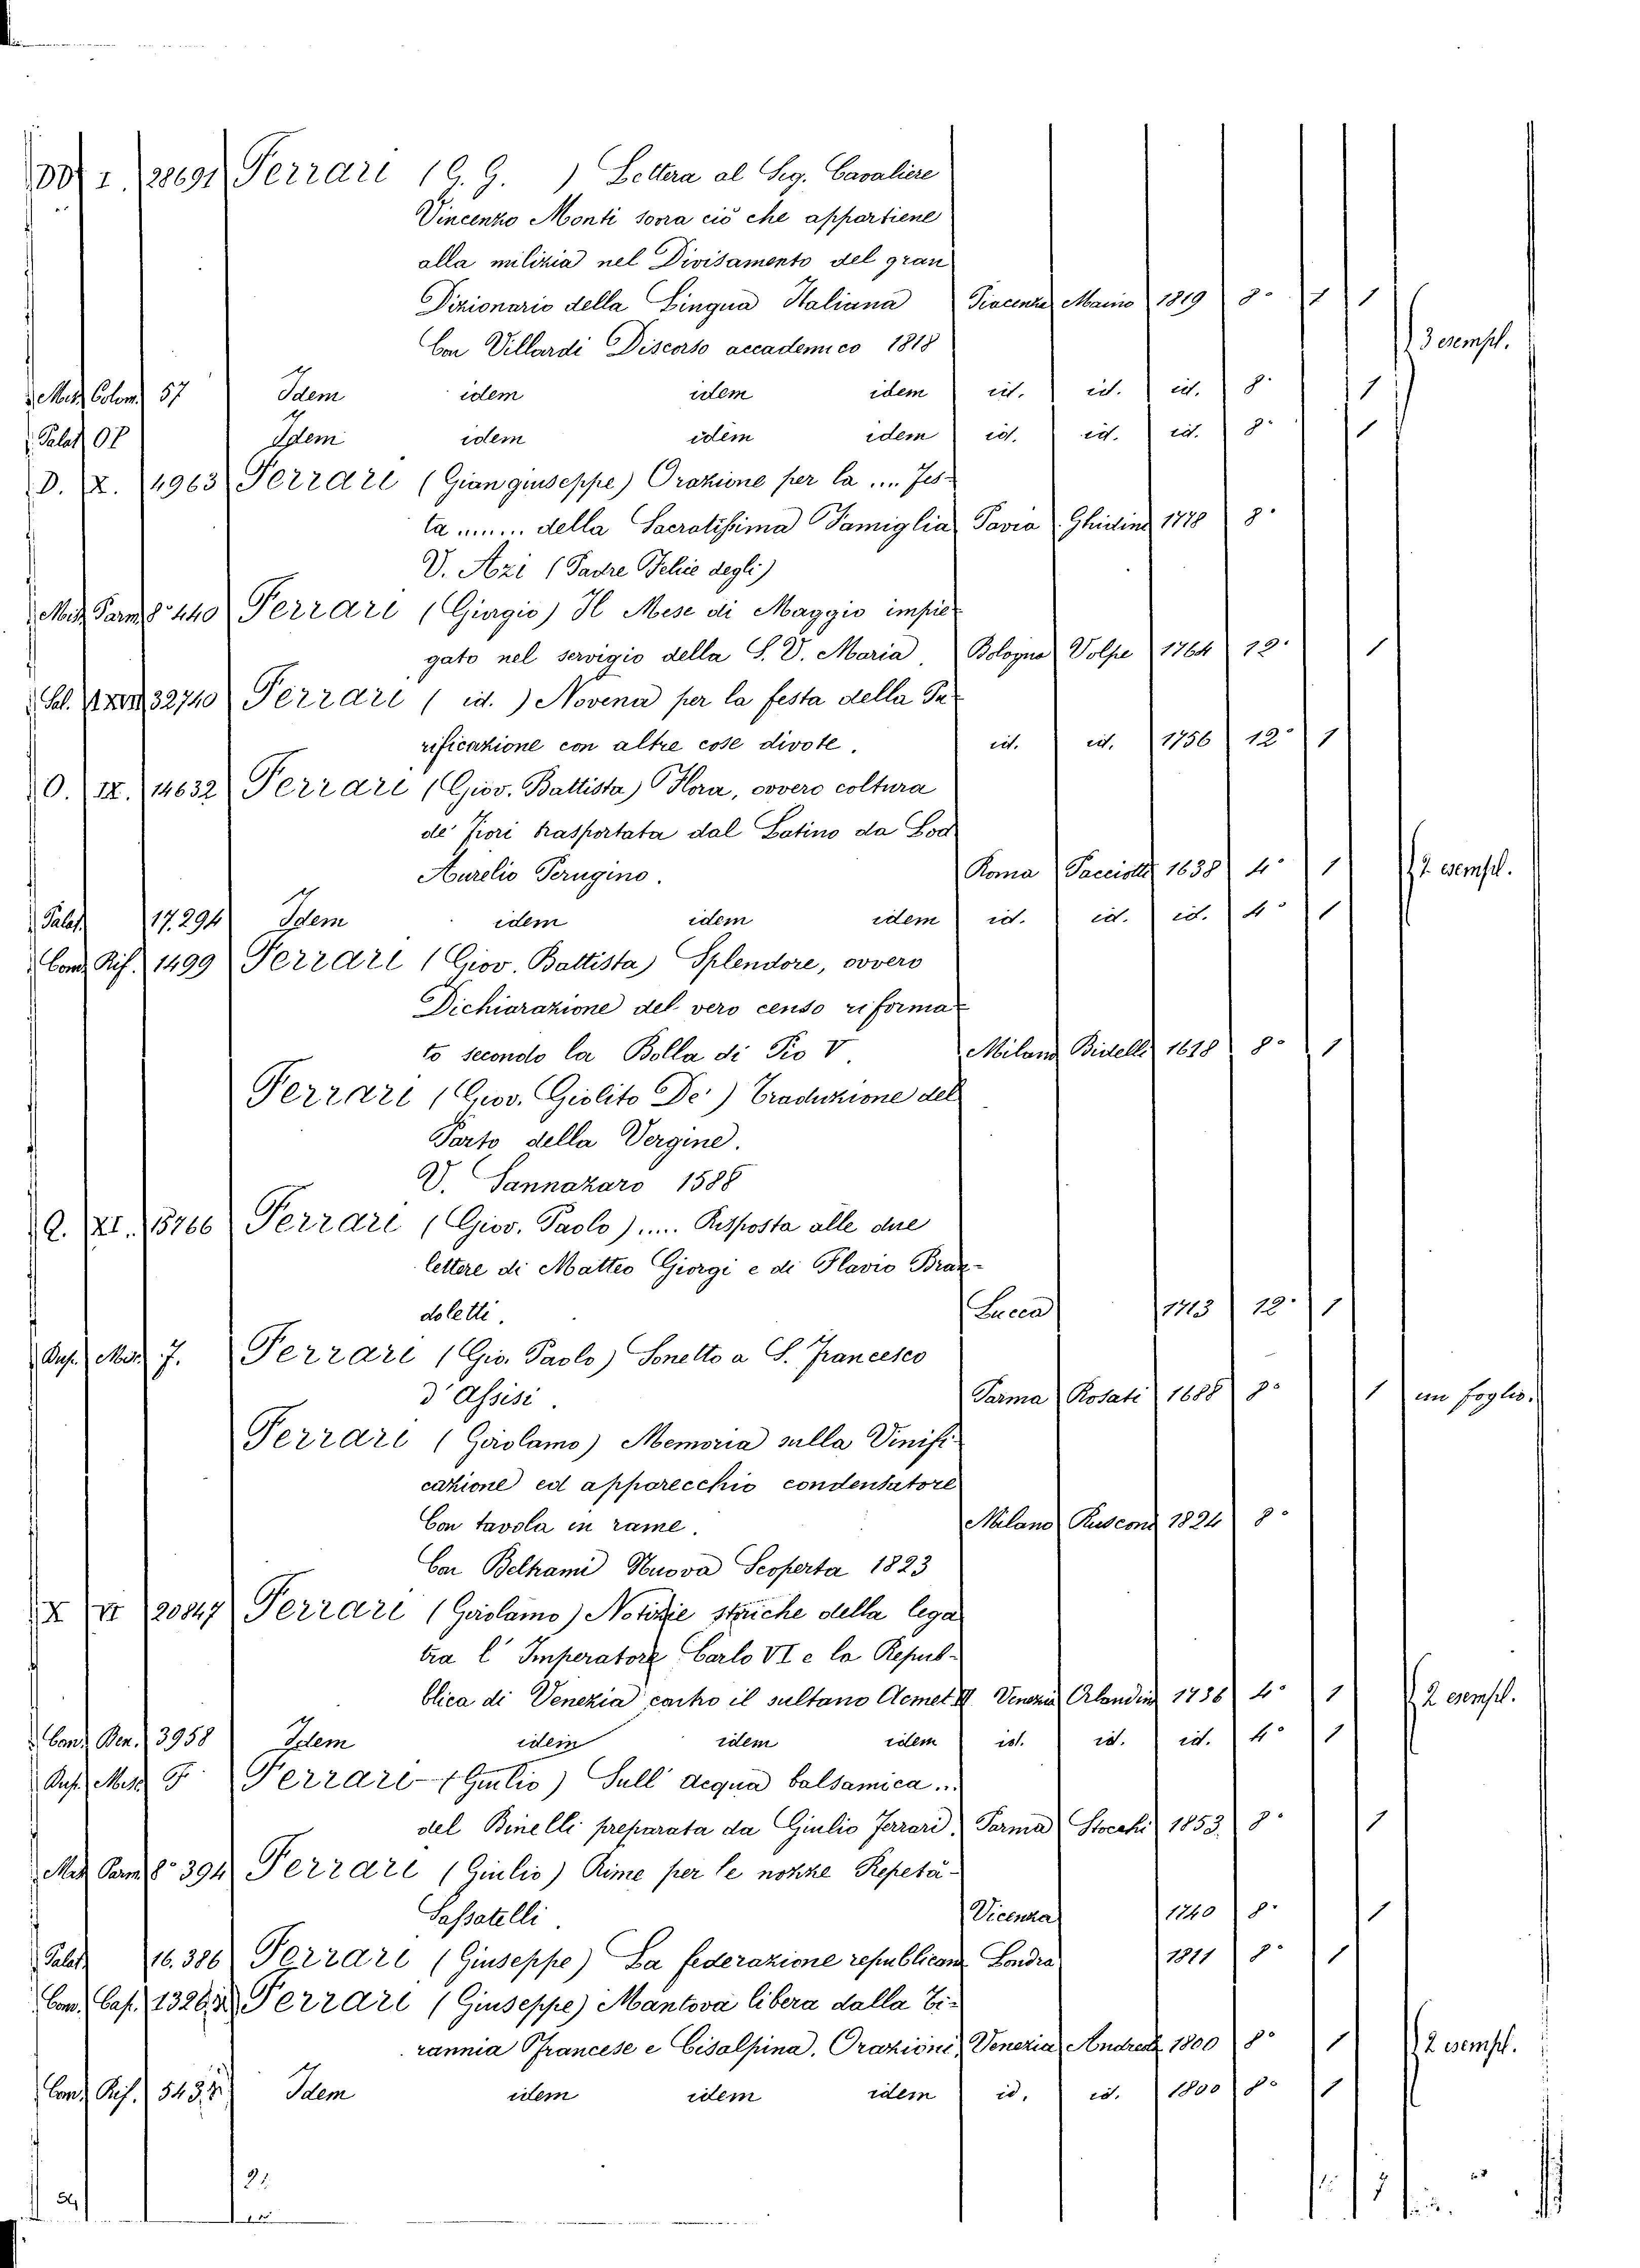 I. 28691 Ferrari (G. G. ) Lettera al Sig. Cavaliere
Vincenzo Monti sovra ciò che appartiene
alla milizia nel Divisamento del gran
Dizionario della Lingua Italiana Piacenza Maino 1819 8° 1 1
Con Villardi Discorso accademico 1818 3 esempl.
Misc. Colom. 57 Idem idem idem idem id. id. id. 8° 1
Palat. Idem idem idem idem id. id. id. 8° 1
D. X. 14963 Ferrari (Giangiuseppe) Orazione per la .... Fes-
ta ...... della Sacratissima Famiglia Pavia Ghidini 1778 8°
V. Azi (Padre Felice degli)
Misc. Parm. 8° 440 Ferrari (Giorgio) Il Mese di Maggio impie-
gato nel servigio della S. V. Maria. Bologna Volpe 1764 12° 1
32740 Ferrari ( id. ) Novena per la festa della Pu-
rificazione con altre cose divote. id. id. 1756 12° 1
O. IX. 14632 Ferrari (Giov. Battista) Flora, ovvero coltura
de' Fiori trasportata dal Latino da Lod.
Aurelio Perugino. Roma Facciotti 1638 4° 1 2 esempl.
Palat. 17.294 Idem idem idem idem id. id. id. 4° 1
Com. Rif. 1499 Ferrari (Giov. Battista) Splendore, ovvero
Dichiarazione del vero censo riforma-
to secondo la Bolla di Pio V. Milano Bidelli 1618 8° 1
Ferrari (Giov. Giolito De') Traduzione del
Parto della Vergine.
V. Sannazaro 1588
Q. XI. 15766 Ferrari (Giov. Paolo)..... Risposta alle due
lettere di Matteo Giorgi e di Flavio Bran-
doletti. Lucca 1713 12° 1
Misc. 7. Ferrari (Gio. Paolo) Sonetto a S. Francesco
d'Assisi. Parma Rosati 1688 8° 1 un foglio.
Ferrari (Girolamo) Memoria sulla Vinifi-
cazione ed apparecchio condensatore
Con tavola in rame. Milano Rusconi 1824 8°
Con Beltrami Nuova Scoperta 1823
X VI 20847 Ferrari (Girolamo) Notizie storiche della lega
tra l' Imperatore Carlo VI e la Repub-
blica di Venezia contro il sultano Acmet III. Venezia Orlandini 1736 4° 1 2 esempl.
Con. Ben. 3958 Idem idem idem idem id. id. id. 4° 1
Misc. F. Ferrari (Giulio) Sull' acqua balsamica...
del Binelli preparata da Giulio Ferrari. Parma Stocchi 1853. 8° 1
Misc. Parm. 8° 394 Ferrari (Giulio) Rime per le nozze Repeta-
Sassatelli. Vicenza 1740 8° 1
Palat. 16.386 Ferrari (Giuseppe) La federazione republicana Londra 1811 8° 1
Con. Cap. Ferrari (Giuseppe) Mantova libera dalla Ti-
rannia Francese e Cisalpina. Orazione. Venezia Andreola 1800 8° 1 2 esempl.
Con. Rif. Idem idem idem idem id. id. 1800 8° 1